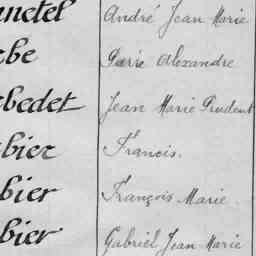 nctel André Jean Marie
be Pierre Alexandre
bedet Jean Marie Prudent
bier Francis.
bier François Marie
bier Gabriel Jean Marie